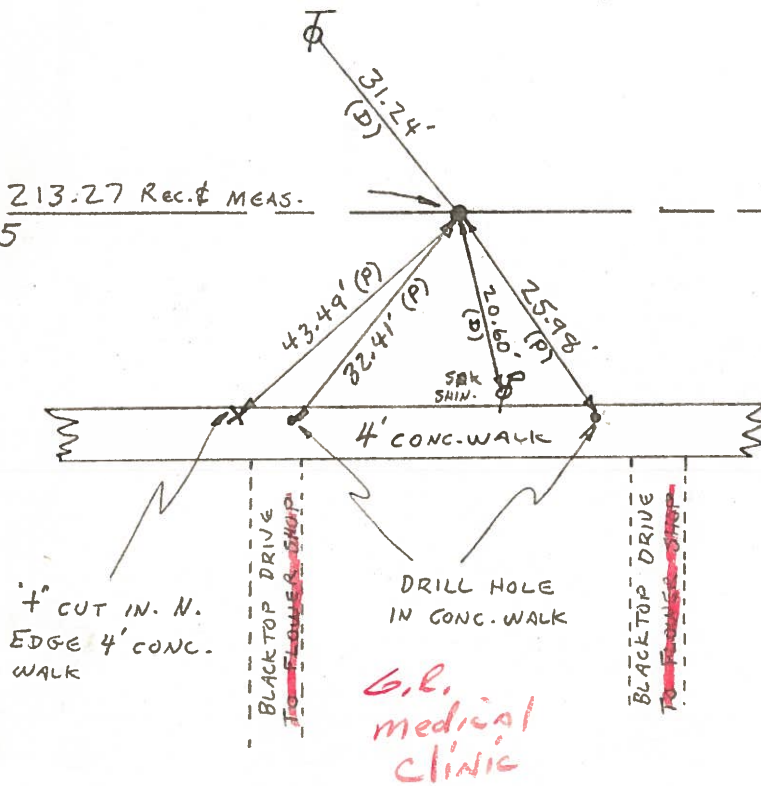 31.24'
(D)
213.27 Rec. & MEAS.
5
43.49' (P)
32.41' (P)
20.60'
(D)
25.98'
(P)
SHIN.
X
4' CONC. WALK
"+" CUT IN. N.
EDGE 4' CONC.
WALK
BLACKTOP DRIVE
TO FLOWER SHOP
DRILL HOLE
IN CONC. WALK
BLACKTOP DRIVE
TO FLOWER SHOP
medical
clinic